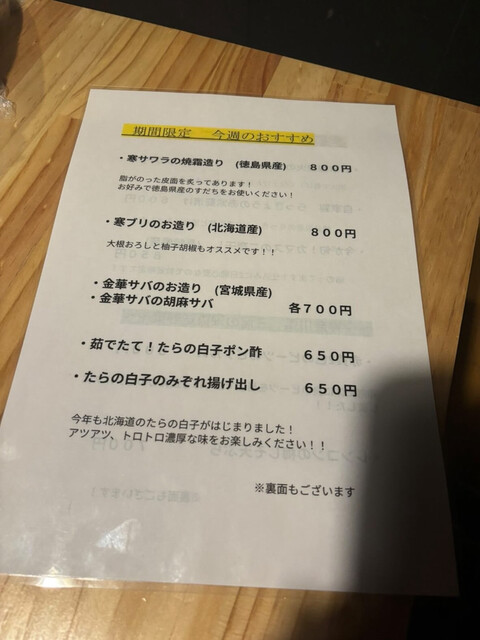 期間限定　今週のおすすめ
・寒サワラの焼霜造り　(徳島県産)　８００円
脂がのった皮面を炙ってあります！
お好みで徳島県産のすだちをお使いください！
・寒ブリのお造り　(北海道産)　８００円
大根おろしと柚子胡椒もオススメです！！
・金華サバのお造り　(宮城県産)
・金華サバの胡麻サバ　各７００円
・茹でたて！たらの白子ポン酢　６５０円
・たらの白子のみぞれ揚げ出し　６５０円
今年も北海道のたらの白子がはじまりました！
アツアツ、トロトロ濃厚な味をお楽しみください！！
※裏面もございます